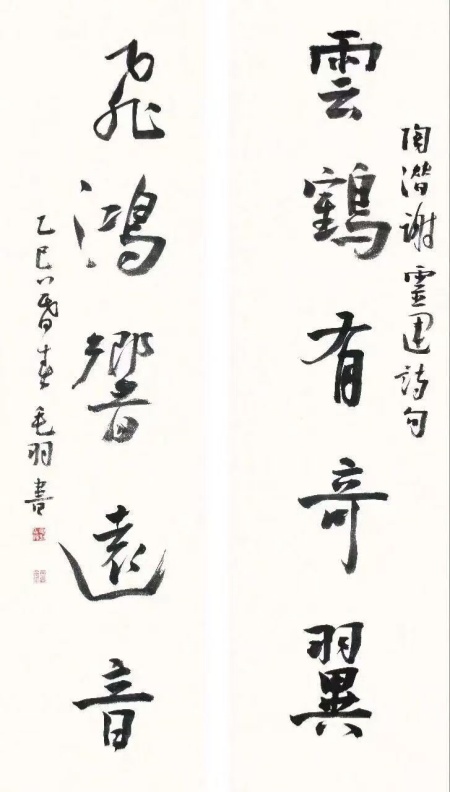 陶潛謝靈運詩句
雲鶴有奇翼
飛鴻響遠音
乙巳暮春毛羽書